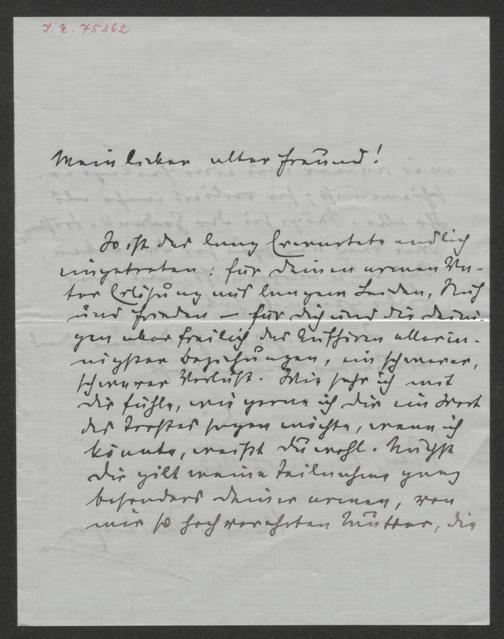 I. N. 75362
Mein lieber alter Freund!
So ist das lang Erwartete endlich
eingetreten: für Deinen armen Va-
ter Erlösung aus langem Leiden, Ruh
und Frieden – für Dich und die Deini-
gen aber freilich das Aufhören allerin-
nigster Beziehungen, ein schwerer,
schwerer Verlust. Wie sehr ich mit
Dir fühle, wie gerne ich Dir ein Wort
des Trostes sagen möchte, wenn ich
könnte, weißt Du wohl. Nächst
Dir gilt meine Teilnahme ganz
besonders Deiner armen, von
mir so hochverehrten Mutter, die